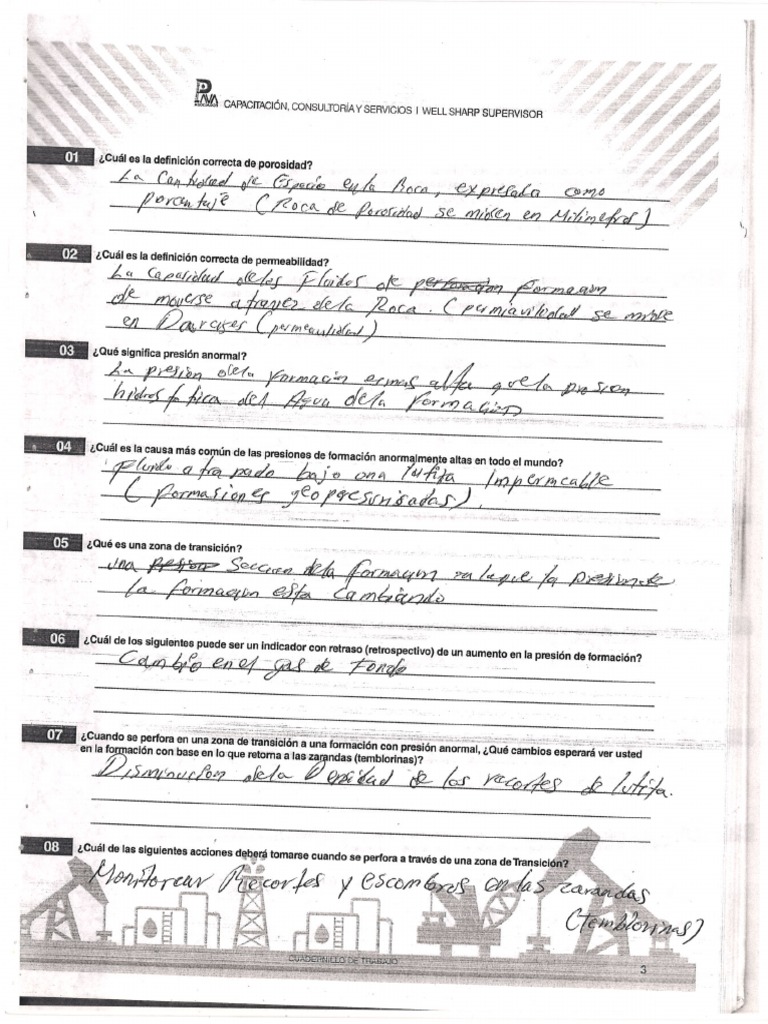 PAVA
CAPACITACIÓN, CONSULTORÍA Y SERVICIOS | WELL SHARP SUPERVISOR
01 ¿Cuál es la definición correcta de porosidad?
La Cantidad de Espacio en la Roca, expresada como
porcentaje (Roca de porosidad se miden en Milimetros)
02 ¿Cuál es la definición correcta de permeabilidad?
La Capasidad de los Fluidos de perforacion Formacion
de moverse a travez de la Roca. (permiavilidad se mide
en Darcises (permeavilidad)
03 ¿Qué significa presión anormal?
La presion dela Formacion es mas alta que la presion
hidrostatica del Agua dela Formacion
04 ¿Cuál es la causa más común de las presiones de formación anormalmente altas en todo el mundo?
Fluido atrapado bajo una lutita Impermeable
(Formasiones geopresurisadas).
05 ¿Qué es una zona de transición?
una Presion Seccion dela Formacion en la que la presion de
la formacion esta Cambiando
06 ¿Cuál de los siguientes puede ser un indicador con retraso (retrospectivo) de un aumento en la presión de formación?
Cambio en el gas de Fondo
07 ¿Cuando se perfora en una zona de transición a una formación con presión anormal, ¿Qué cambios esperará ver usted
en la formación con base en lo que retorna a las zarandas (temblorinas)?
Disminucion dela Densidad de los recortes de lutita.
08 ¿Cuál de las siguientes acciones deberá tomarse cuando se perfora a través de una zona de Transición?
Monitorear Recortes y escombros en las zarandas
(temblorinas)
CUADERNILLO DE TRABAJO
3